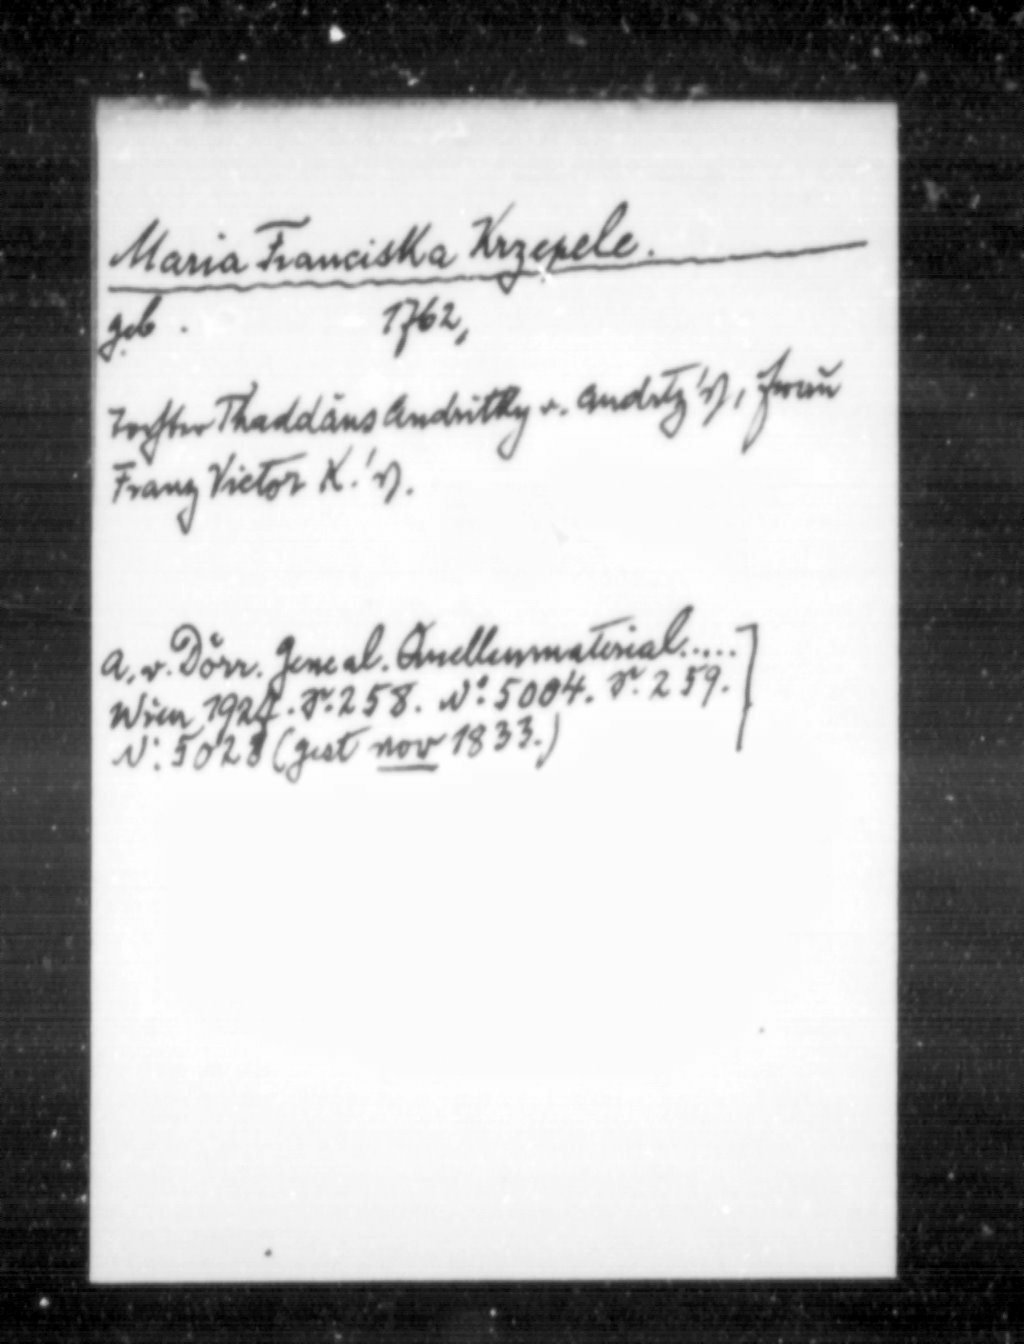 Maria Franciska Krzepele.
geb. 1762,
Tochter Thaddäus Andritzky v. Andritz's, Frau
Franz Victor K.'s.
A. v. Dörr. Geneal. Quellenmaterial.....
Wien 192 . S. 258. N°. 5004. S. 259.
N°. 5028 (gest nov 1833.)